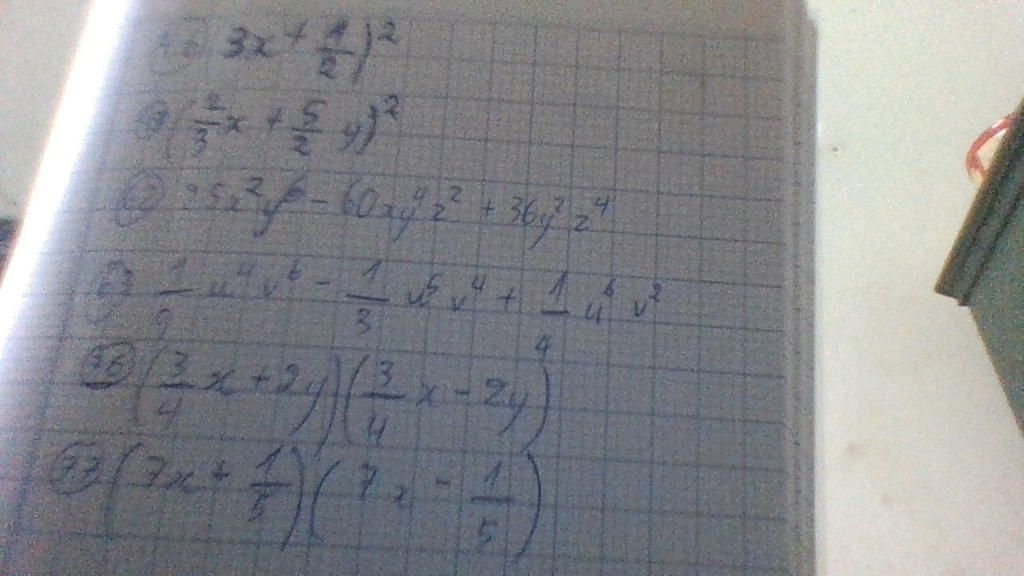 3x + 1/2)²
(2/3 x + 5/2 y)²
25x²y⁶ - 60xy⁴z² + 36y²z⁴
1/9 u⁴v⁶ - 1/3 u⁵v⁴ + 1/4 u⁶v²
(3/4 x + 2y)(3/4 x - 2y)
(7x + 1/5)(7x - 1/5)